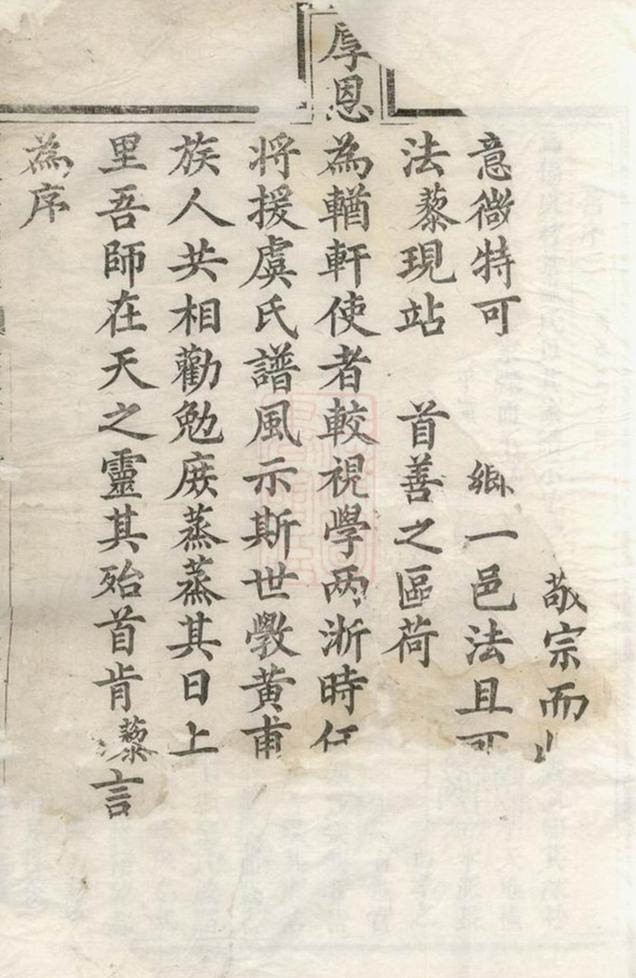 厚恩
敬宗而
意微特可鄉一邑法且可
法藜現站 首善之區荷
為輶軒使者較視學两浙時任
将援虞氏譜風示斯世斆黄甫
族人共相勸勉庻蒸蒸其日上
里吾師在天之靈其殆首肯藜言
為序